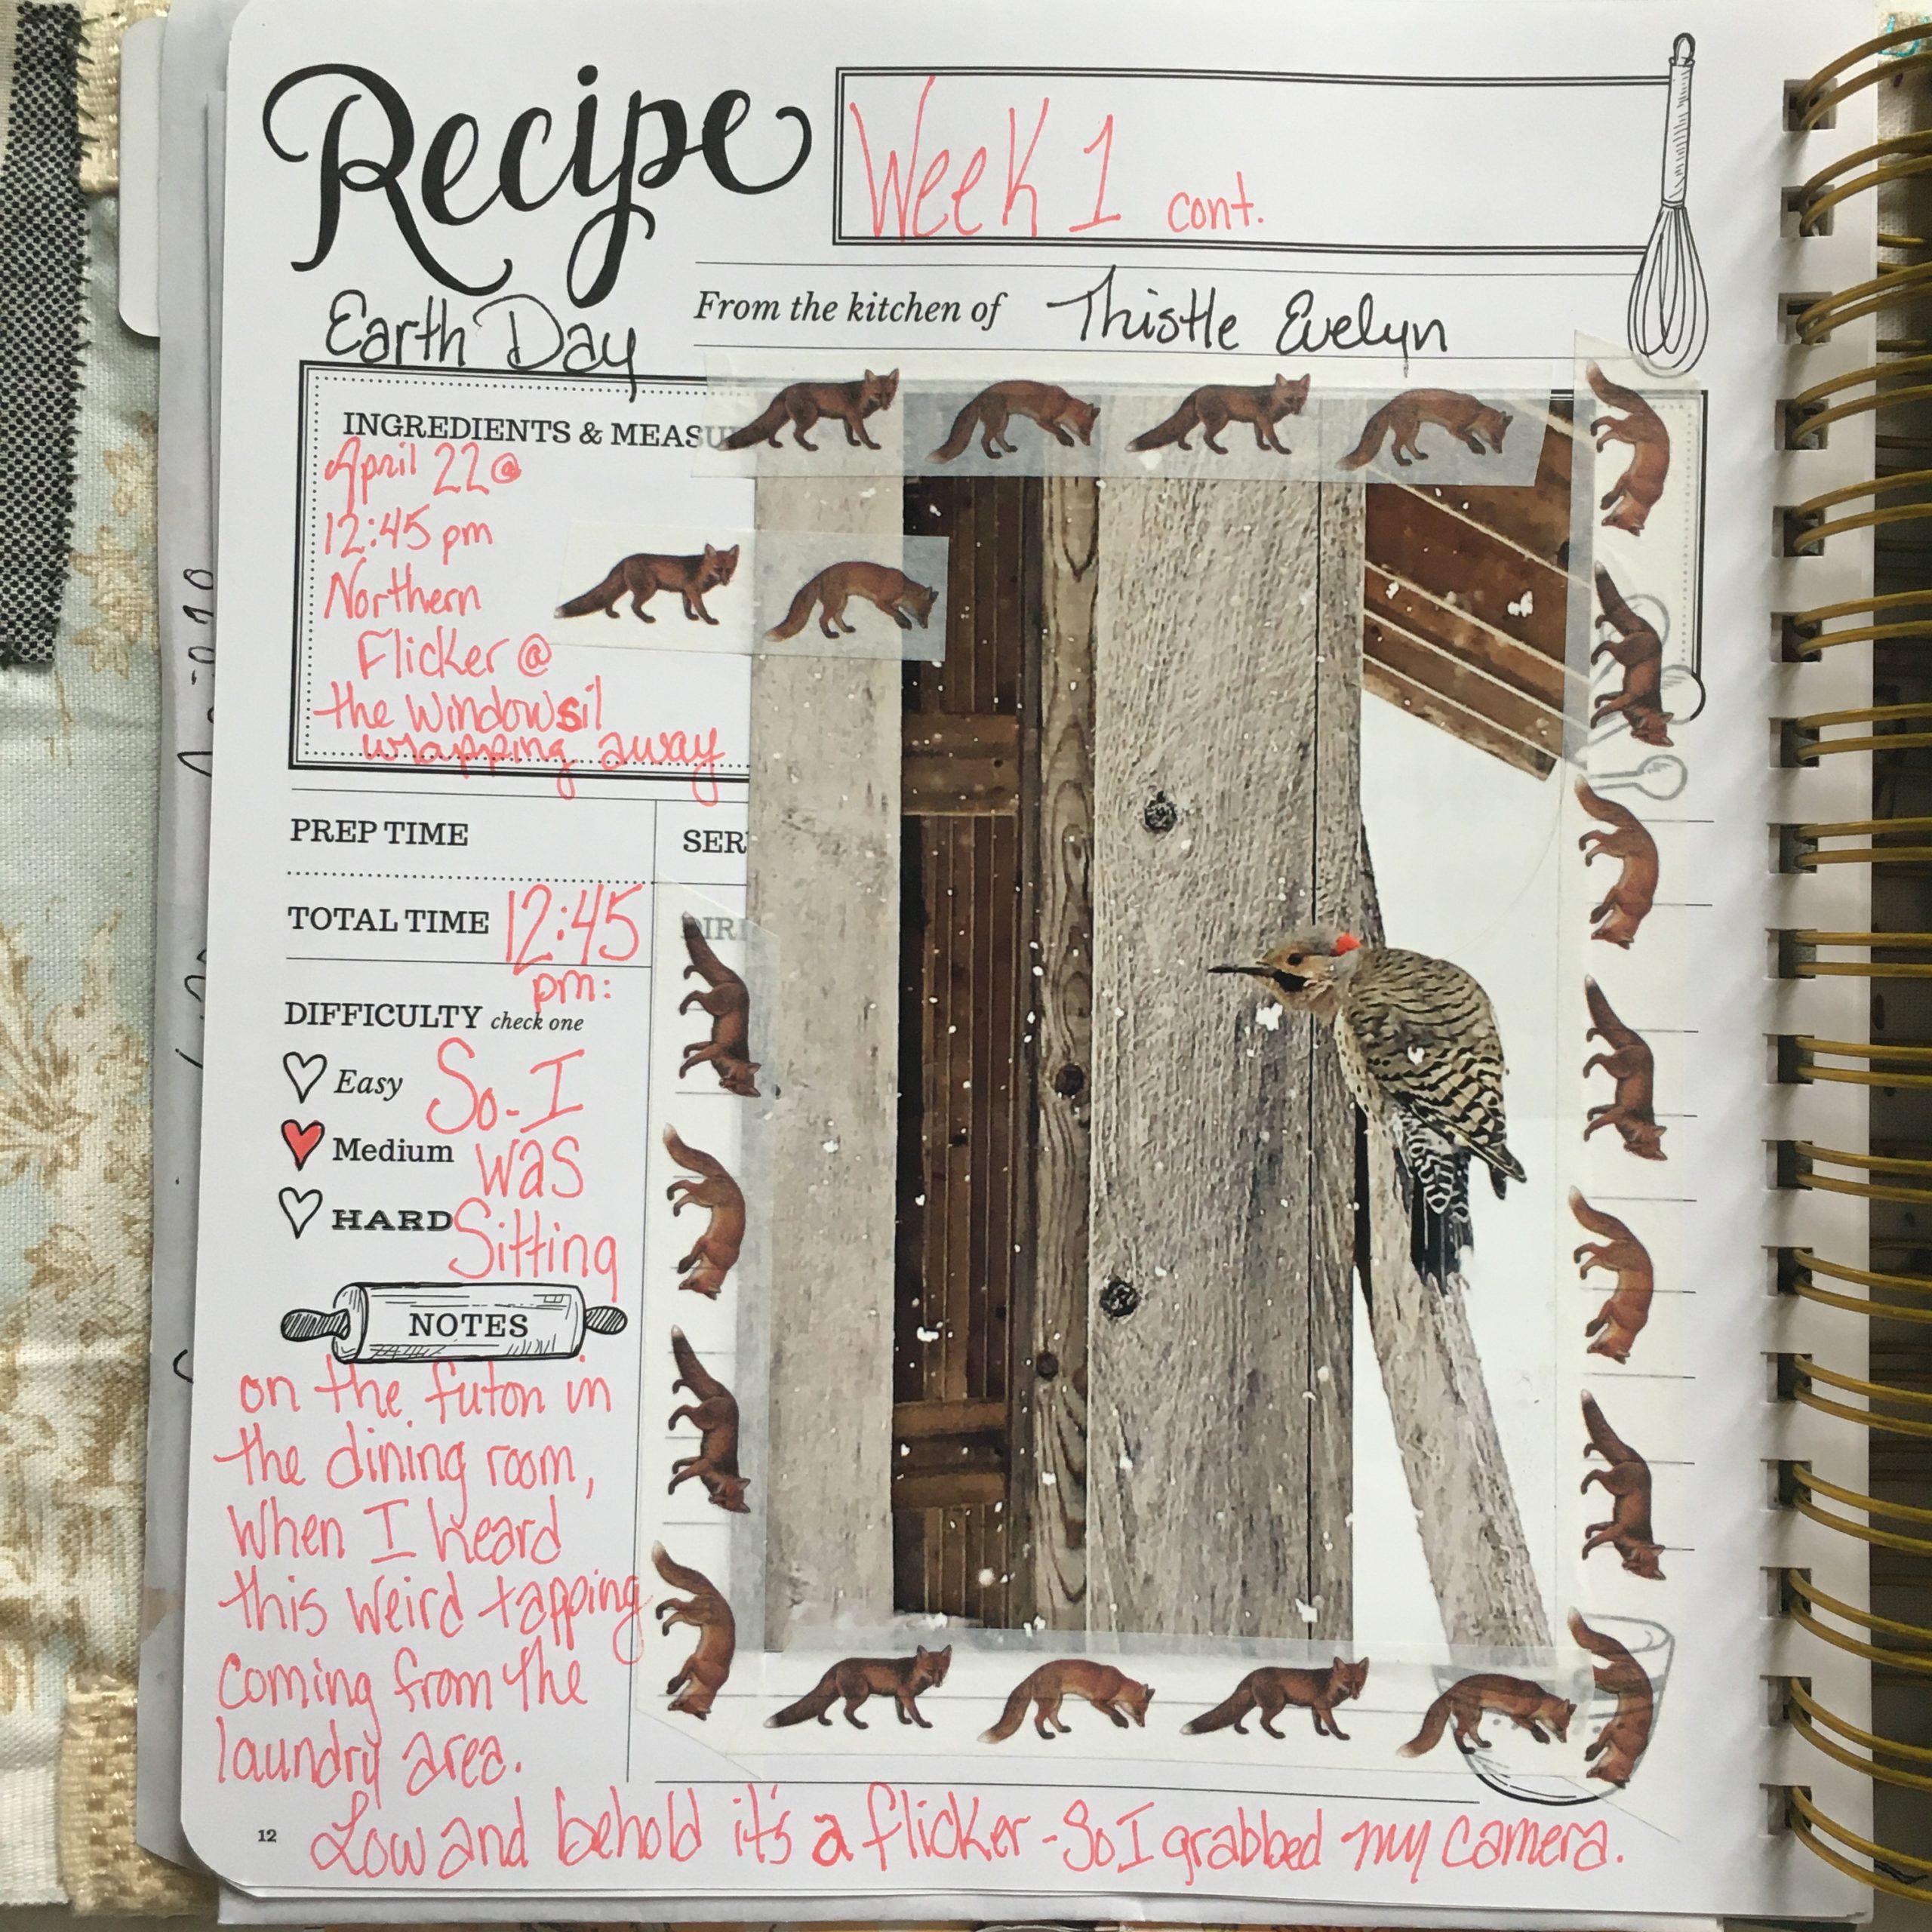 Recipe
Week 1 cont.
Earth Day
From the kitchen of Thistle Evelyn
INGREDIENTS & MEASU
April 22 @
12:45 pm
Northern
Flicker @
the windowsil
wrapping away
PREP TIME
SER
TOTAL TIME 12:45
pm:
DIR
DIFFICULTY check one
Easy
Medium
HARD
So-I
was
Sitting
NOTES
on the futon in
the dining room,
When I heard
this weird tapping
coming from the
laundry area.
Low and behold it's a flicker - So I grabbed my camera.
12